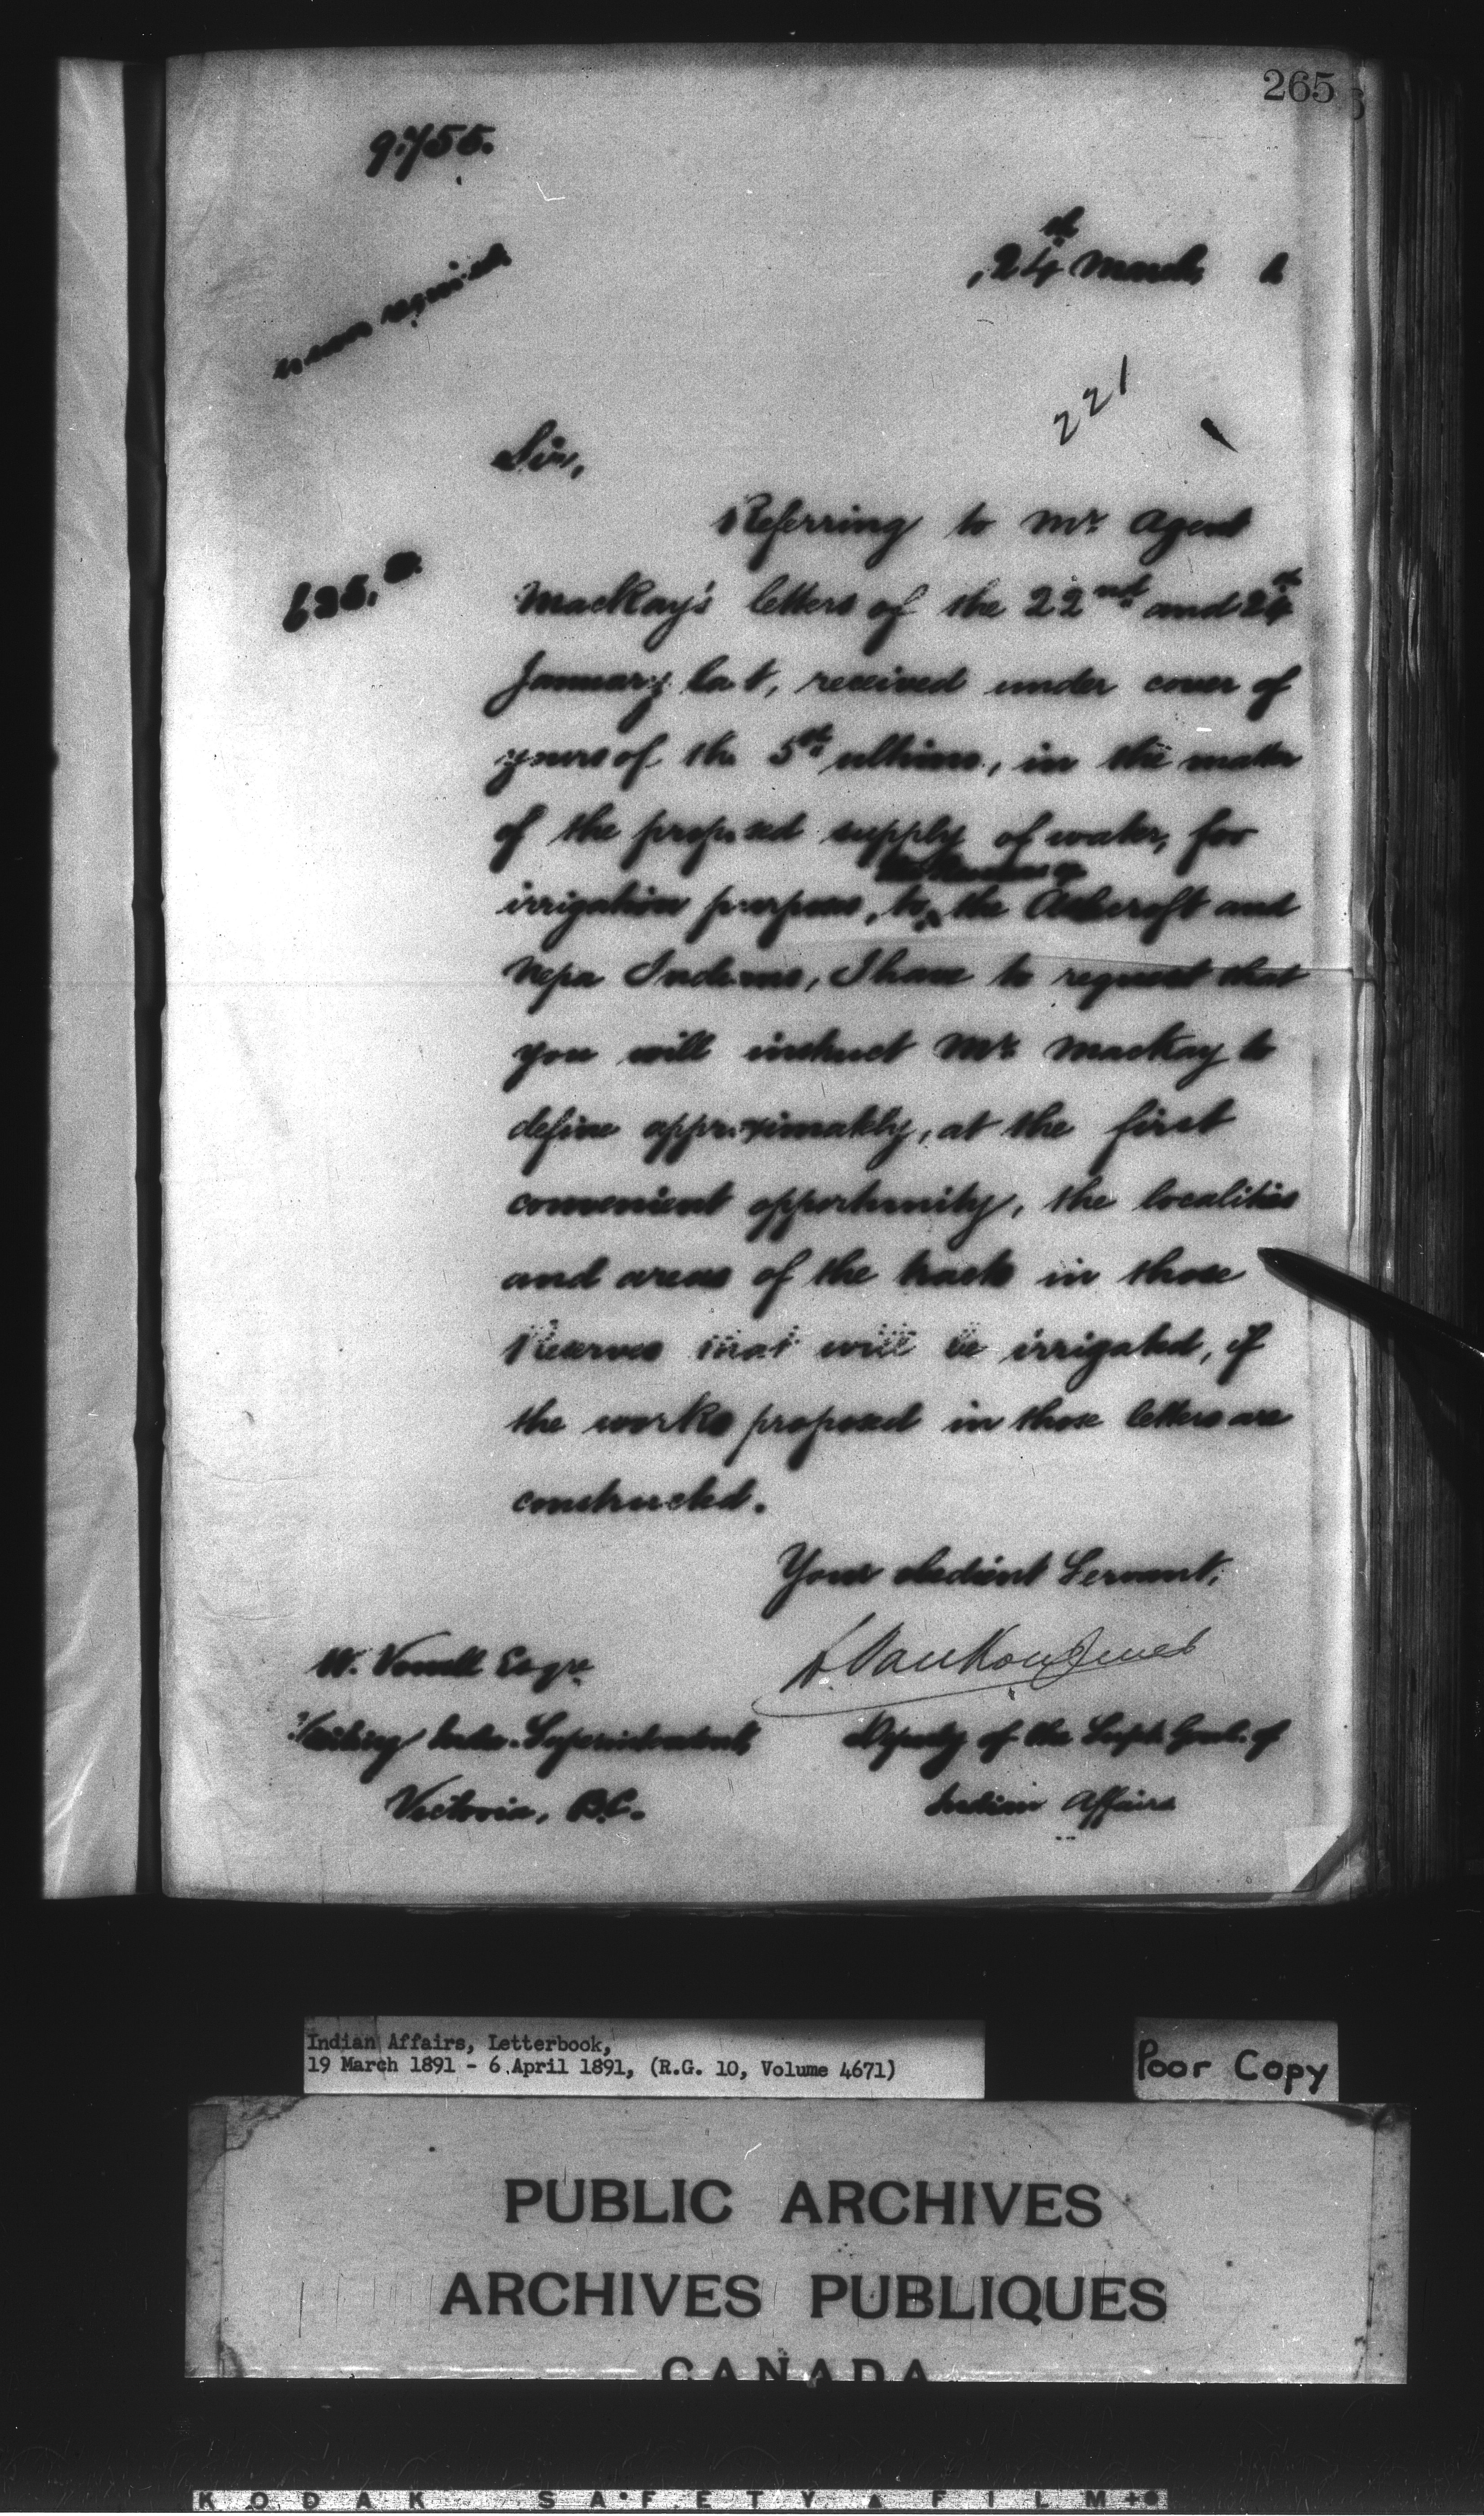 265
9.755.
24th March
221
Sir,
Referring to Mr. Agent
MacKay's letters of the 22nd and 24th
January last, received under cover of
yours of the 5th ultimo, in the matter
of the proposed supply of water, for
irrigation purposes, to the Reserves of the Ashcroft and
Nepa Indians, I have to request that
you will instruct Mr. MacKay to
define approximately, at the first
convenient opportunity, the localities
and areas of the tracts in those
Reserves that will be irrigated, if
the works proposed in those letters are
constructed.
Your obedient Servant,
W. Vowell Esqre.
L. VanKoughnet
Visiting Indn. Superintendent,
Deputy of the Supt. Genl. of
Victoria, B.C.
Indian Affairs
Indian Affairs, Letterbook,
19 March 1891 - 6 April 1891, (R.G. 10, Volume 4671)
Poor Copy
PUBLIC ARCHIVES
ARCHIVES PUBLIQUES
CANADA
KODAK SAFETY FILM